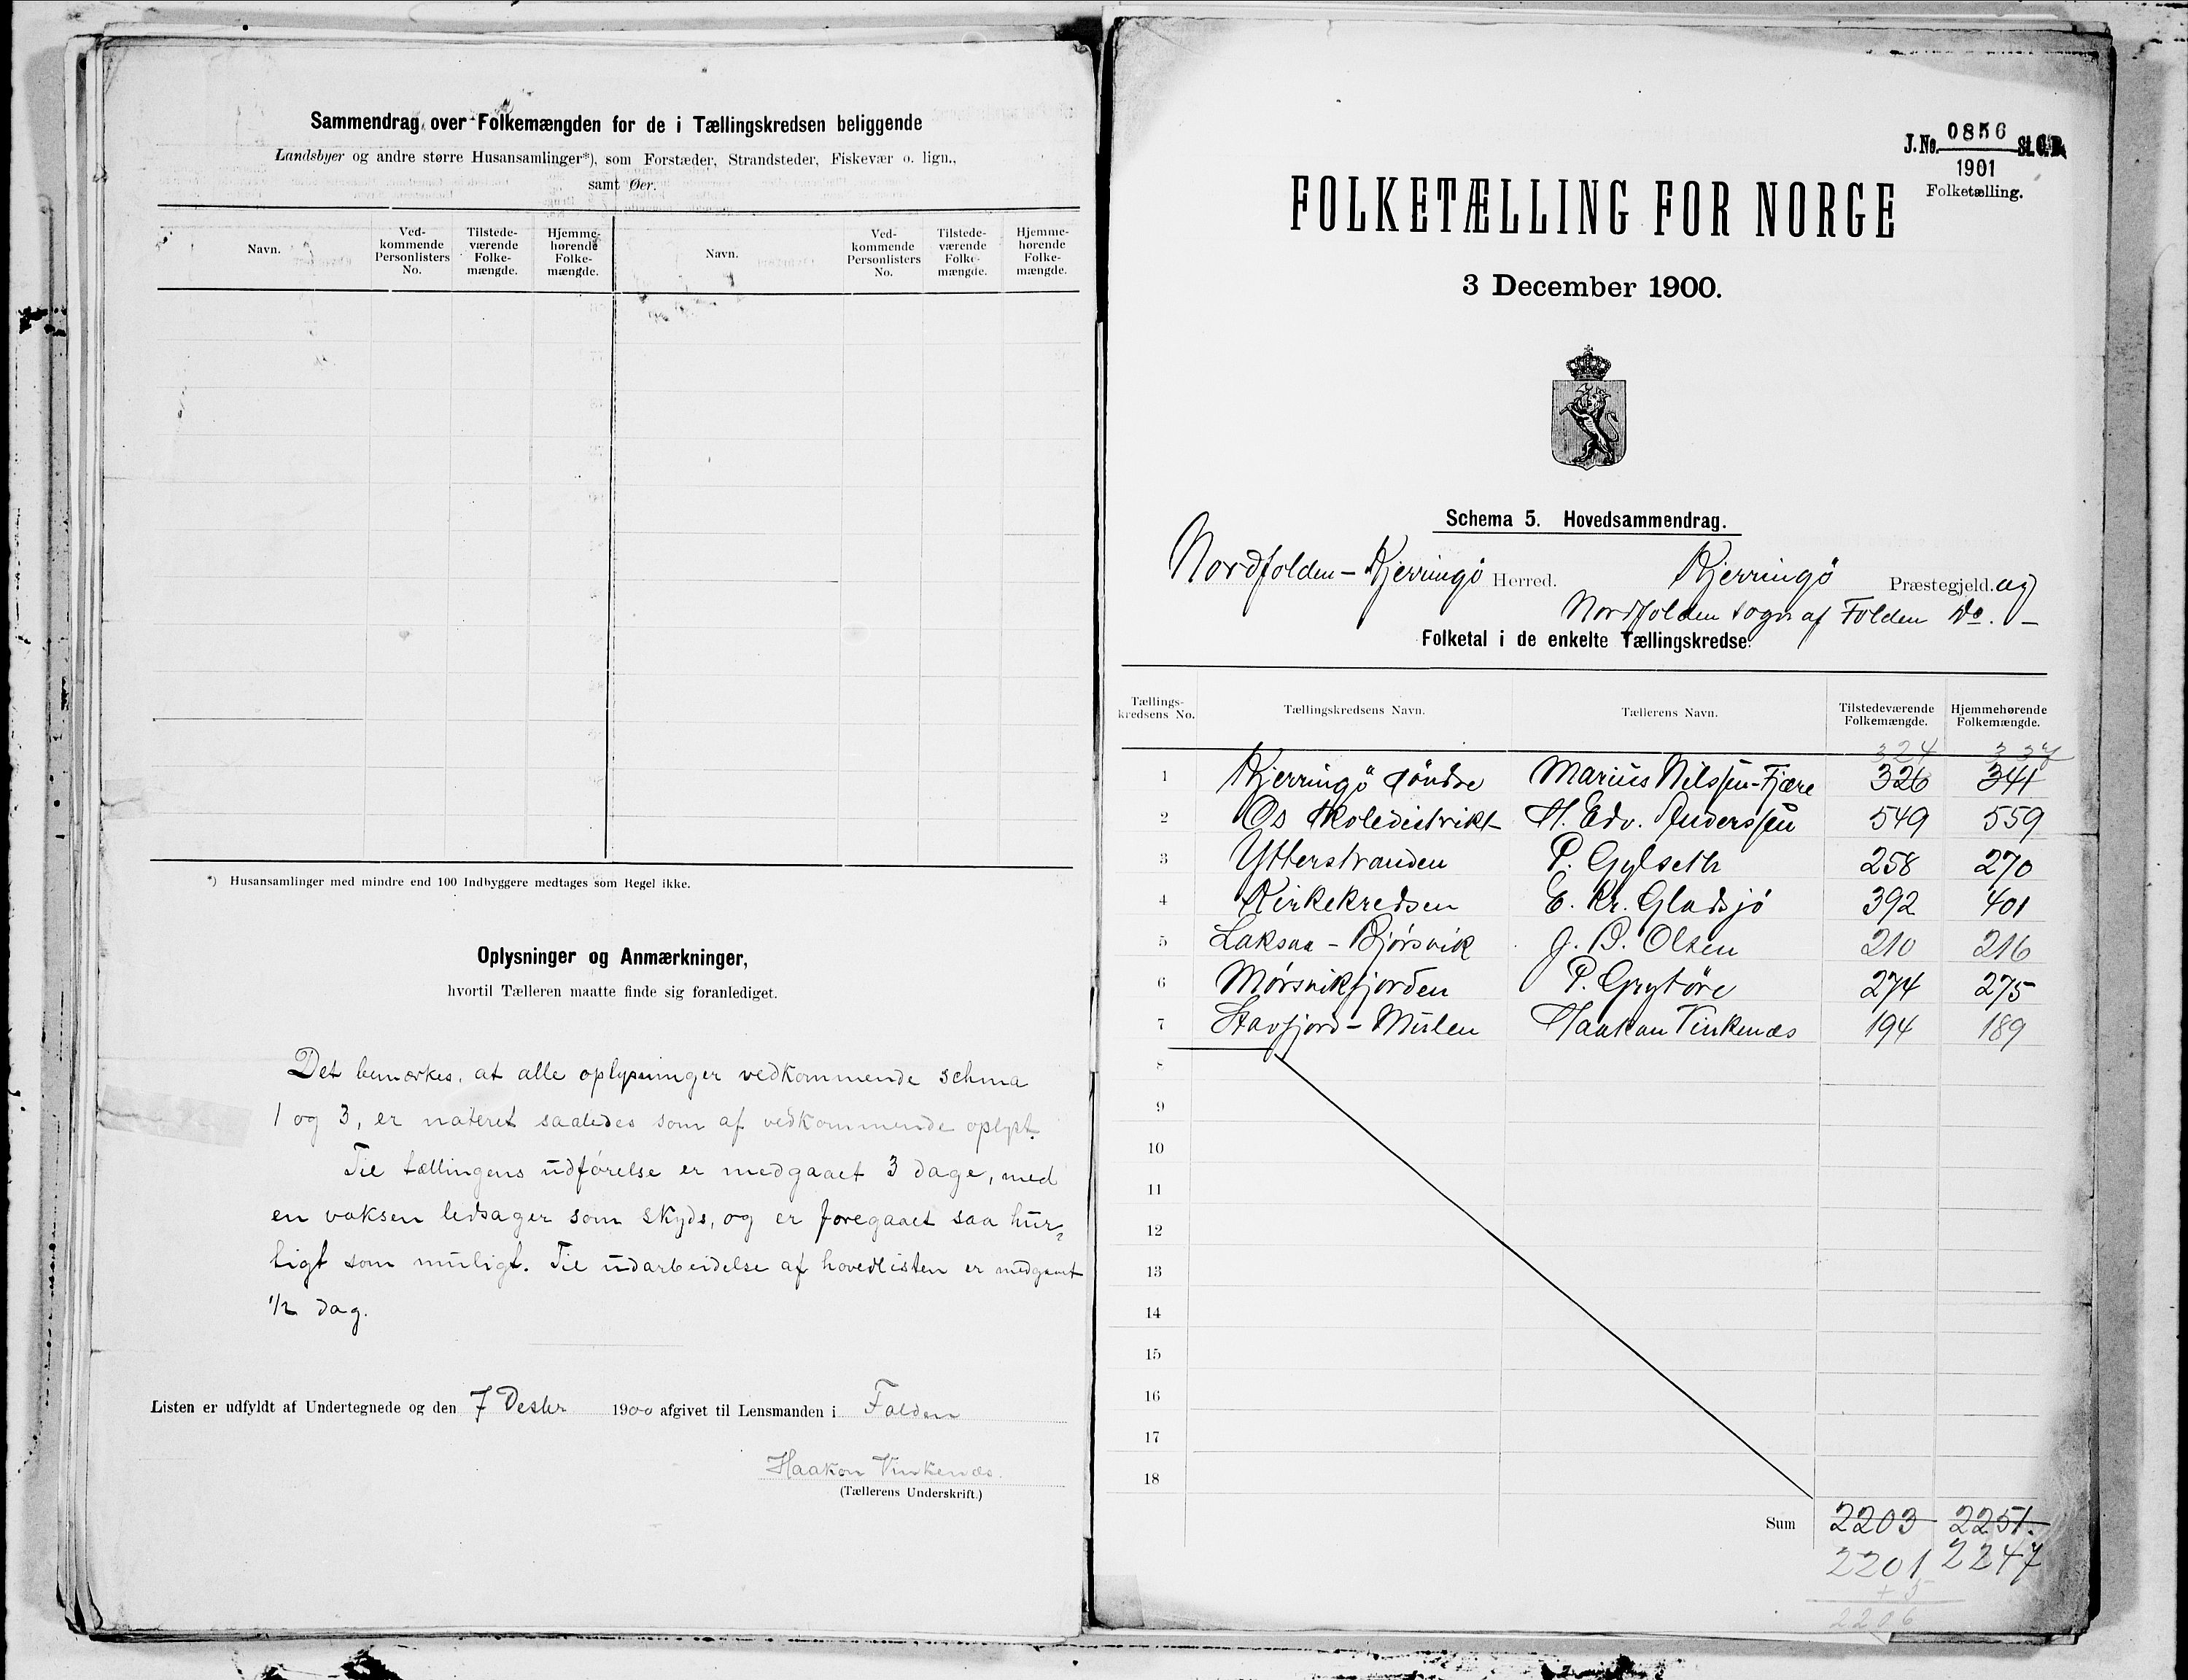 Sammendrag over Folkemængden for de i Tællingskredsen beliggende
Landsbyer og andre større Husansamlinger*), som Forstæder, Strandsteder, Fiskevær o. lign.,
samt Øer.
Navn. Ved-kommende Personlisters No. Tilstede-værende Folke-mængde. Hjemme-hørende Folke-mængde. Navn. Ved-kommende Personlisters No. Tilstede-værende Folke-mængde. Hjemme-hørende Folke-mængde.
*) Husansamlinger med mindre end 100 Indbyggere medtages som Regel ikke.
Oplysninger og Anmærkninger,
hvortil Tælleren maatte finde sig foranlediget.
Det bemærkes, at alle oplysninger vedkommende schma
1 og 3, er noteret saaledes som af vedkommende oplyst.
Til tællingens udførelse er medgaaet 3 dage, med
en voksen ledsager som skyds, og er foregaaet saa hur-
tigt som muligt. Til udarbeidelse af hovedlisten er medgaaet
1/2 dag.
Listen er udfyldt af Undertegnede og den 7 Desbr 1900 afgivet til Lensmanden i Folden
Haakon Vinkenæs.
(Tællerens Underskrift.)
J. No. 0856 St. C.B.
1901
Folketælling.
FOLKETÆLLING FOR NORGE
3 December 1900.
Schema 5. Hovedsammendrag.
Nordfolden-Kjerringö Herred. Kjerringö Præstegjeld. og
Nordfolden sogn af Folden Do. -
Folketal i de enkelte Tællingskredse:
Tællings-kredsens No. Tællingskredsens Navn. Tællerens Navn. Tilstedeværende Folkemængde. Hjemmehørende Folkemængde.
324 337
1 Kjerringö söndre Marius Nilssen-Fjære 326 341
2 Os Skoledistrikt H. Edv. Anderssen 549 559
3 Ytterstranden P. Gylseth 258 270
4 Kirkekredsen E. Kr. Gladsjö 392 401
5 Laksaa - Bjørsvik J. B. Olsen 210 216
6 Mørsvikfjorden P. Grytöre 274 275
7 Stavfjord - Mulen Haakon Vinkenæs 194 189
8
9
10
11
12
13
14
15
16
17
18
Sum 2203 2251.
2201 2247
+ 5
2206